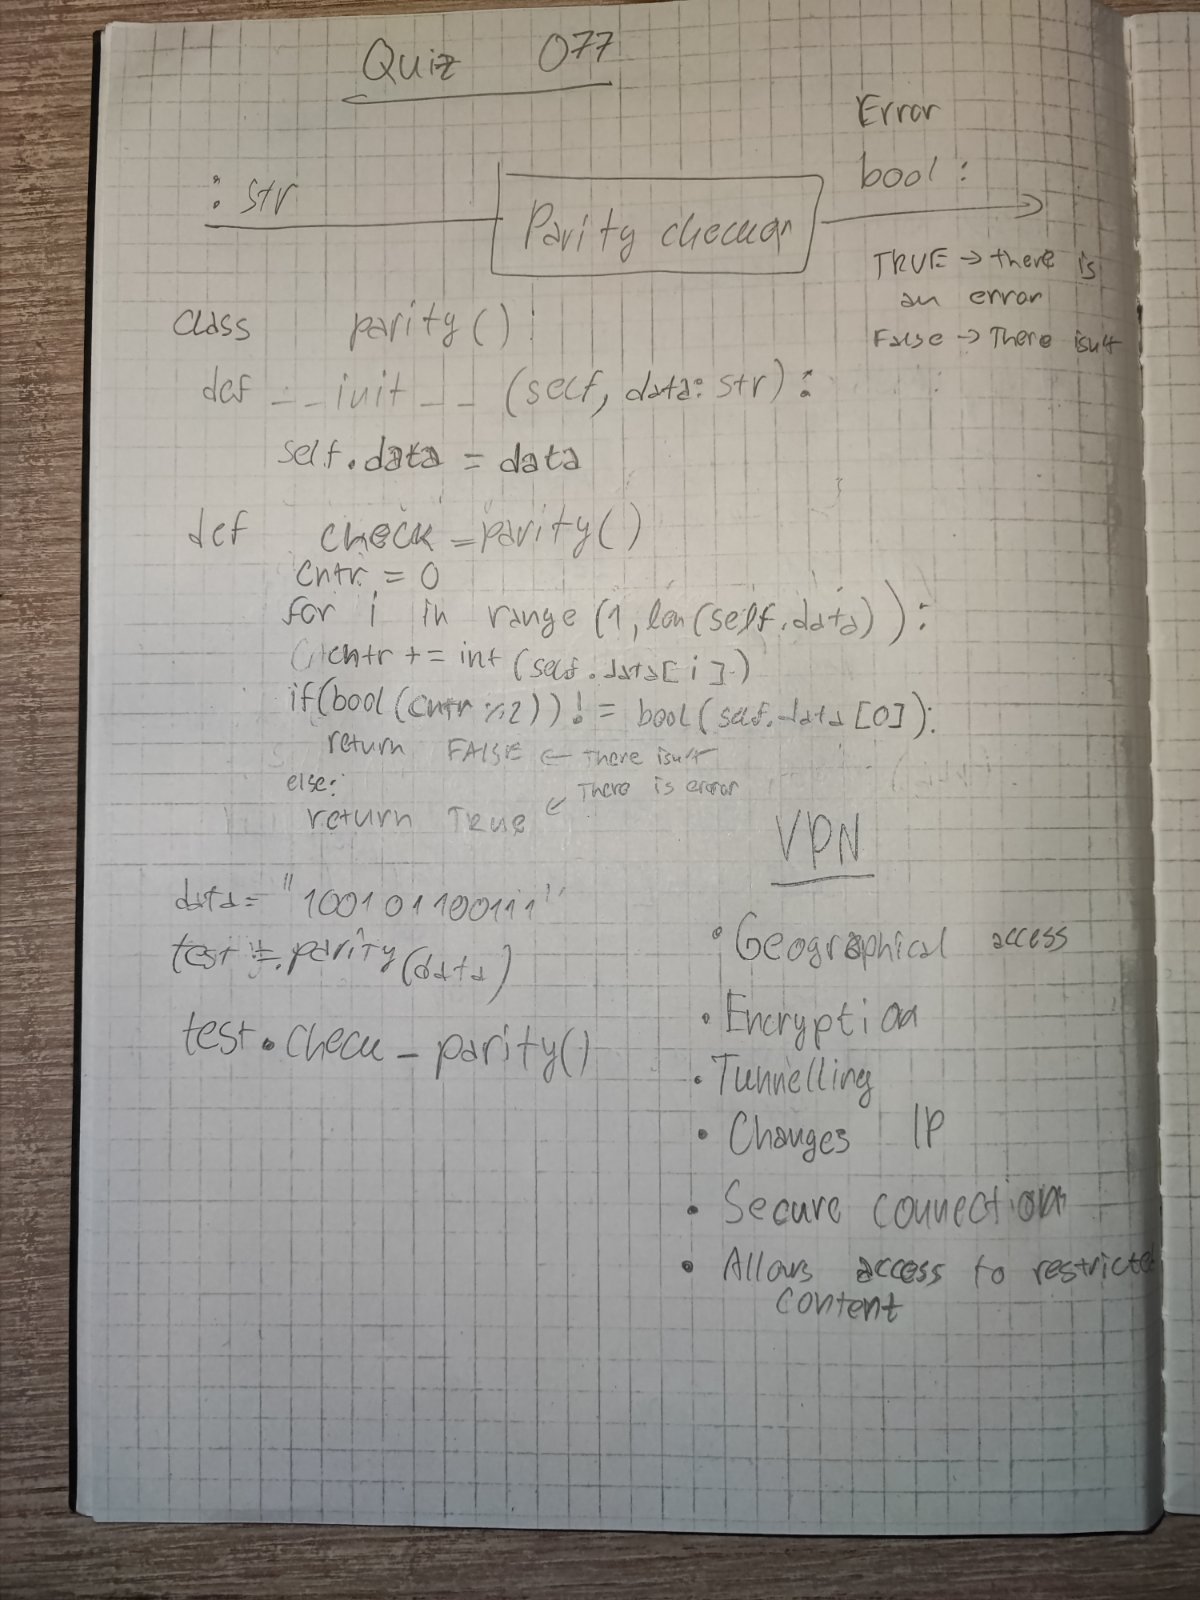 Quiz 077
: str
Parity checker
Error
bool :
TRUE → there is
an error
False → There isn't
class parity() :
def __init__ (self, data: str) :
self.data = data
def check_parity()
cntr = 0
for i in range (1, len(self.data)) :
cntr += int (self.data[i])
if(bool(cntr %2)) != bool(self.data[0]):
return FALSE ← There isn't
else:
return True ← There is error
data= "100101100111"
test =.parity(data)
test.check_parity()
VPN
• Geographical access
• Encryption
• Tunnelling
• Changes IP
• Secure connection
• Allows access to restricted
content